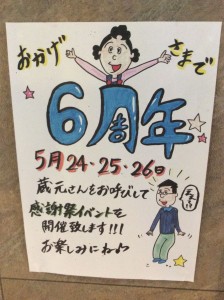 おかげさまで
6周年
5月24・25・26日
蔵元さんをお呼びして
感謝祭イベントを
開催致します!!!
お楽しみにね♪